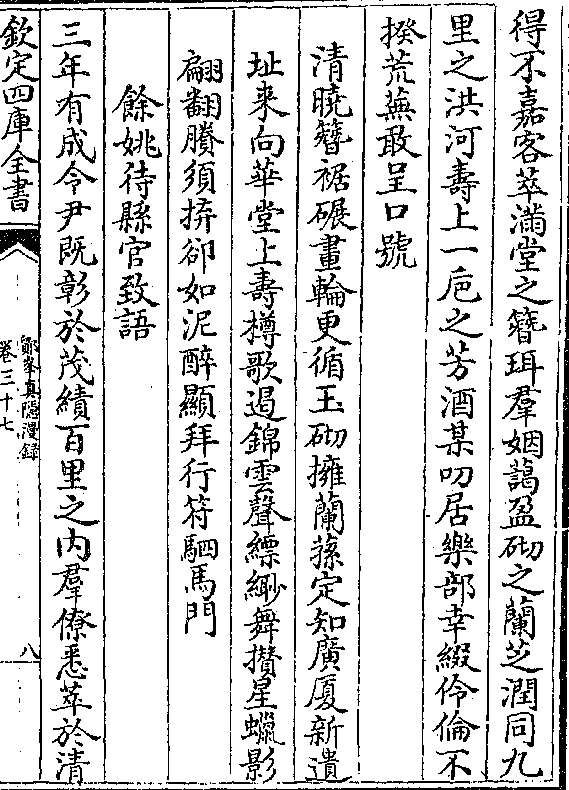 得不嘉客萃滿堂之簮珥羣姻藹盈砌之蘭芝潤同九
里之洪河壽上一巵之芳酒某叨居樂部幸綴伶倫不
揆荒蕪敢呈口號
清曉簮裾碾畫輪更循玉砌擁蘭蓀定知廣厦新遺
址来向華堂上壽樽歌遏錦雲聲縹緲舞攢星蠟影
翩翻賸須拚卻如泥醉顯拜行符駟馬門
餘姚待縣官致語
三年有成令尹既彰於茂績百里之内羣僚悉萃於清
欽定四庫全書
鄮峯真隱漫録
卷三十七
八